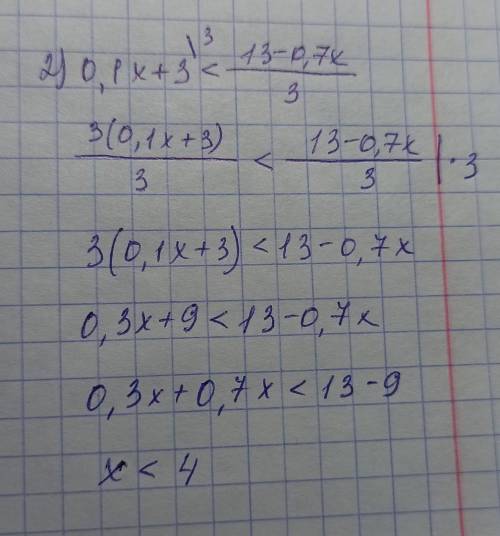 2) 0,1x+3\³ < (13-0,7x)/3
3(0,1x+3)/3 < (13-0,7x)/3 |·3
3(0,1x+3)<13-0,7x
0,3x+9<13-0,7x
0,3x+0,7x<13-9
x<4